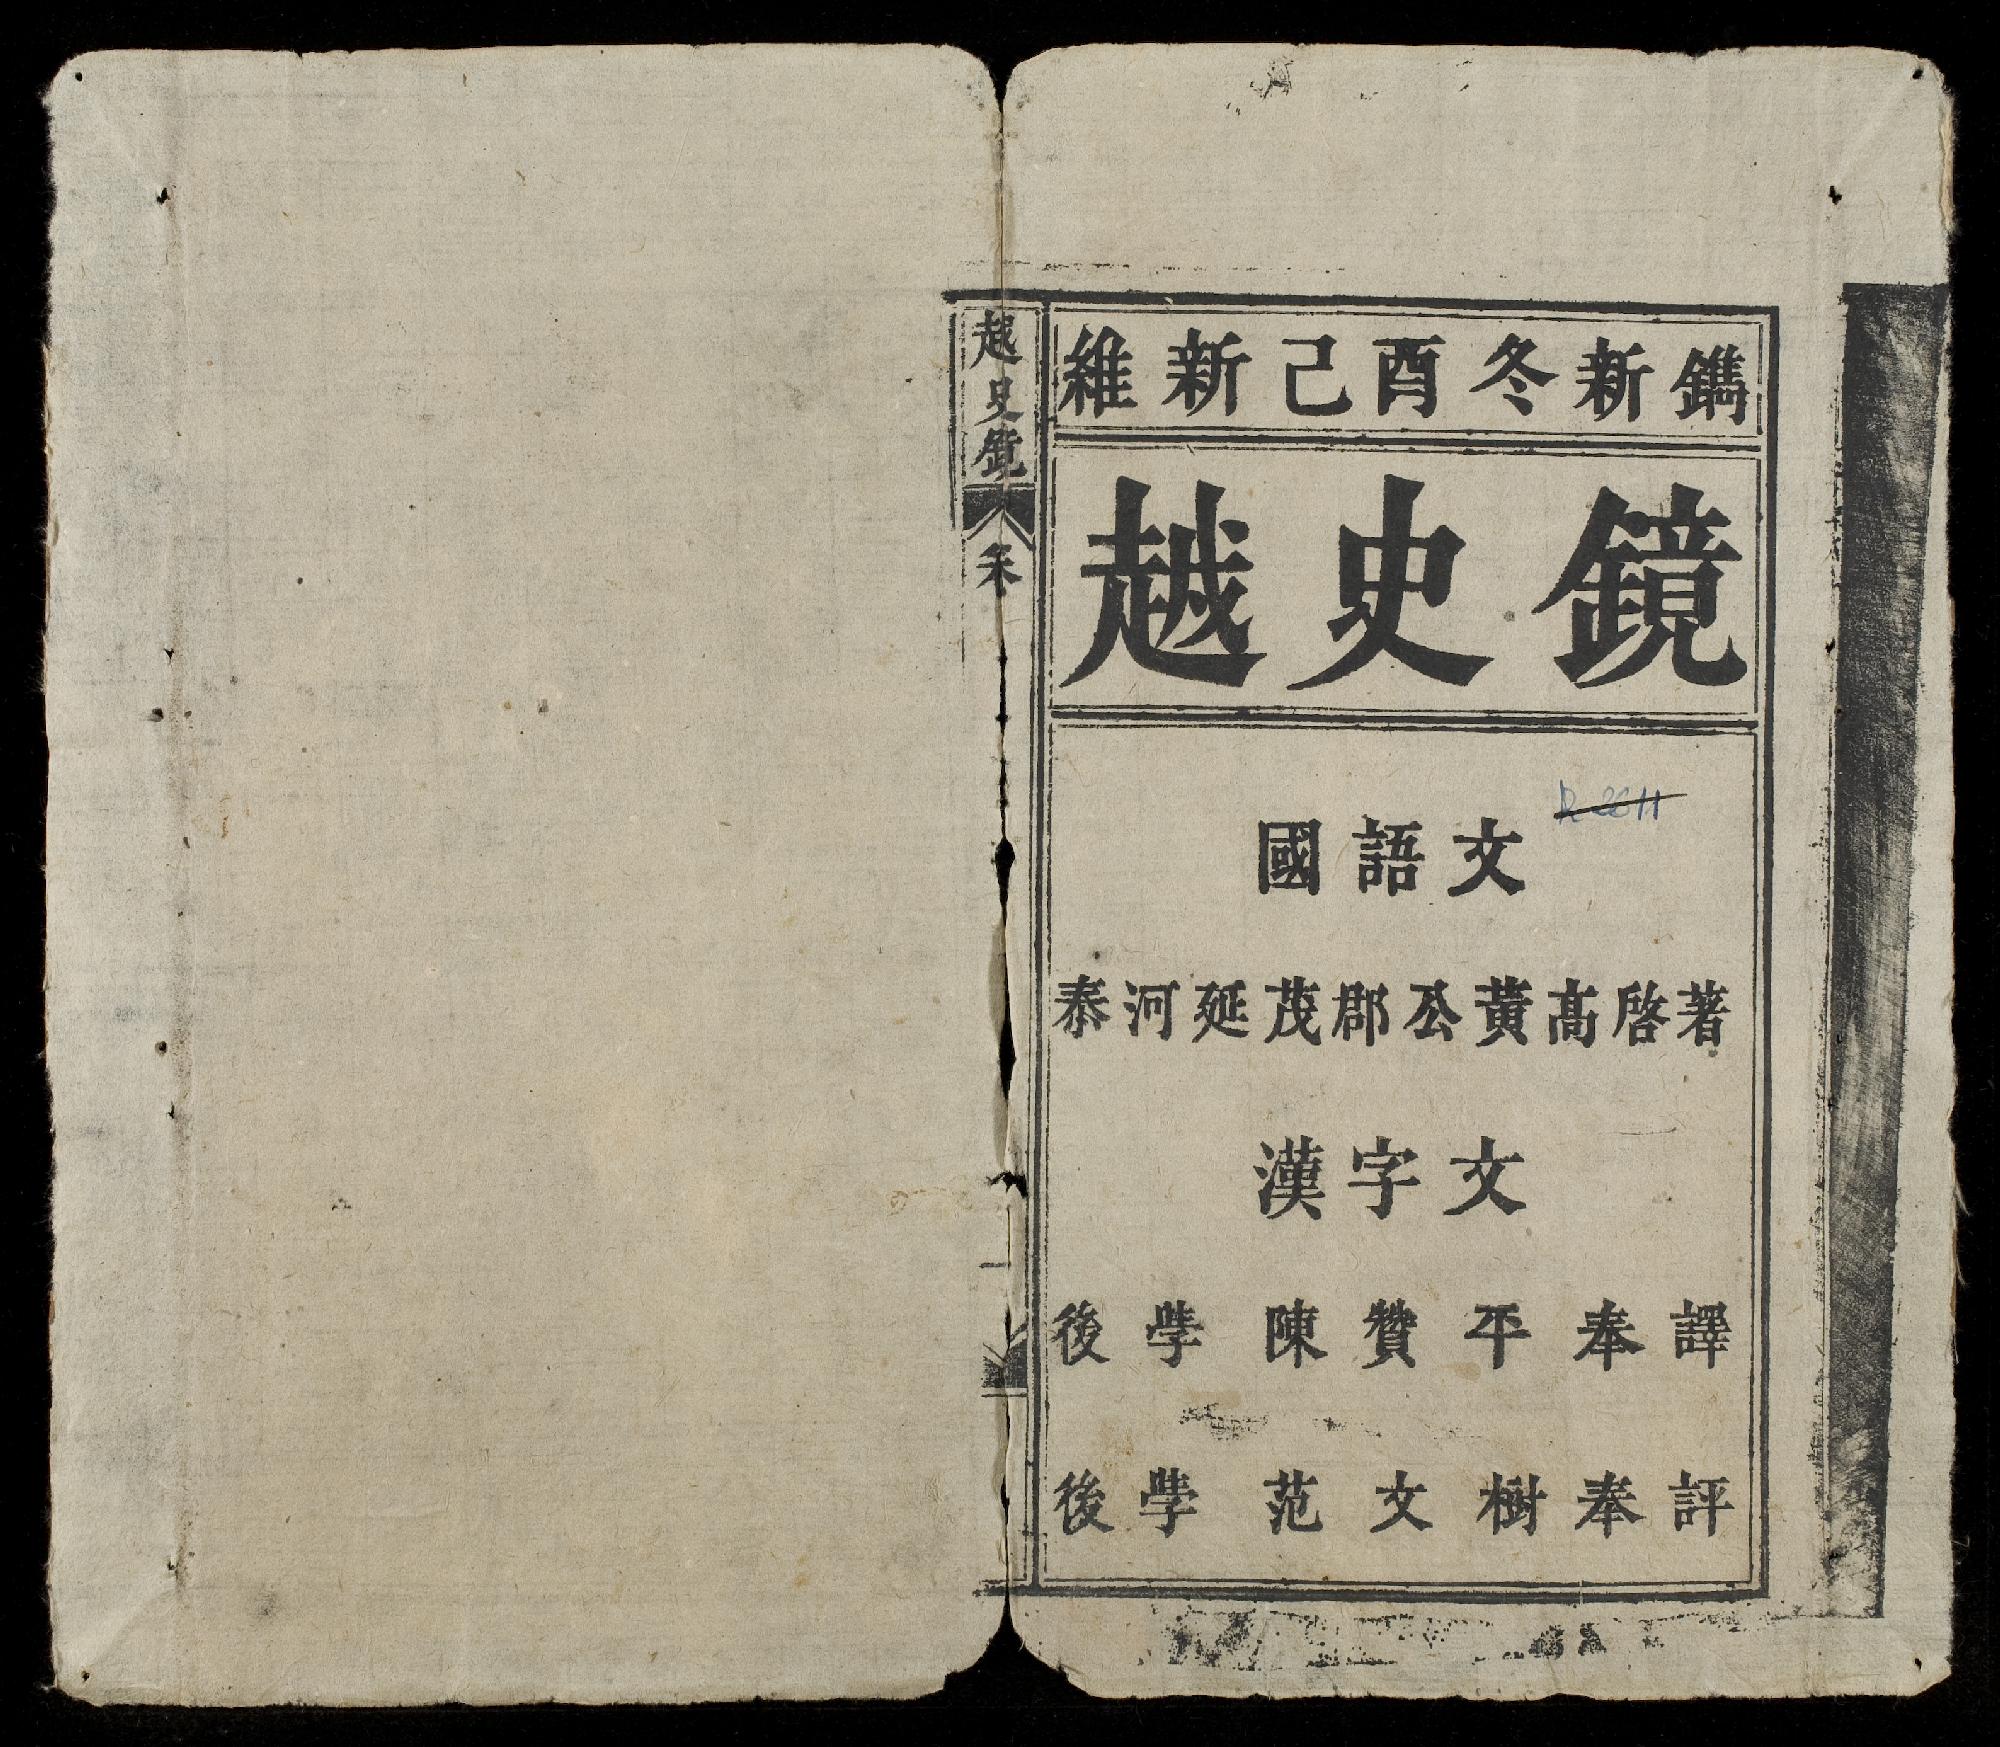 維新己酉冬新鐫
越史鏡
國語文
R 2211
泰河延茂郡公黃髙啓著
漢字文
後學陳贊平奉譯
後學范文樹奉評
越史鏡
一